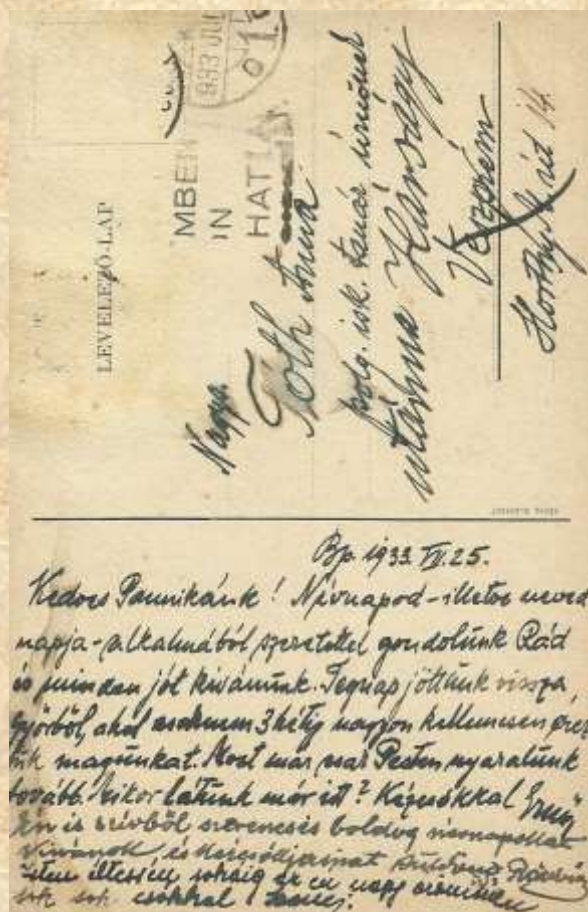 LEVELEZŐ-LAP
933 JUL
MBEN
IN
HATLA
Nagys.
Tóth Anna
polg. isk. tanár úrnőnek
utánna Hárságy
Veszprém
Horthy M. út 14.
Bp. 1933 VII. 25.
Kedves Pannikánk! Névnapod - illetve neved
napja - alkalmából szeretettel gondolunk Rád
és minden jót kívánunk. Tegnap jöttünk vissza
Győrből, ahol majdnem 3 hétig nagyon kellemesen érez
tük magunkat. Most már csak Pesten nyaralunk
tovább. Mikor látunk már itt? Kézcsókkal
Én is szívből szerencsés boldog névnapokat
kívánok, és
Isten éltessen sokáig
sok sok csókkal